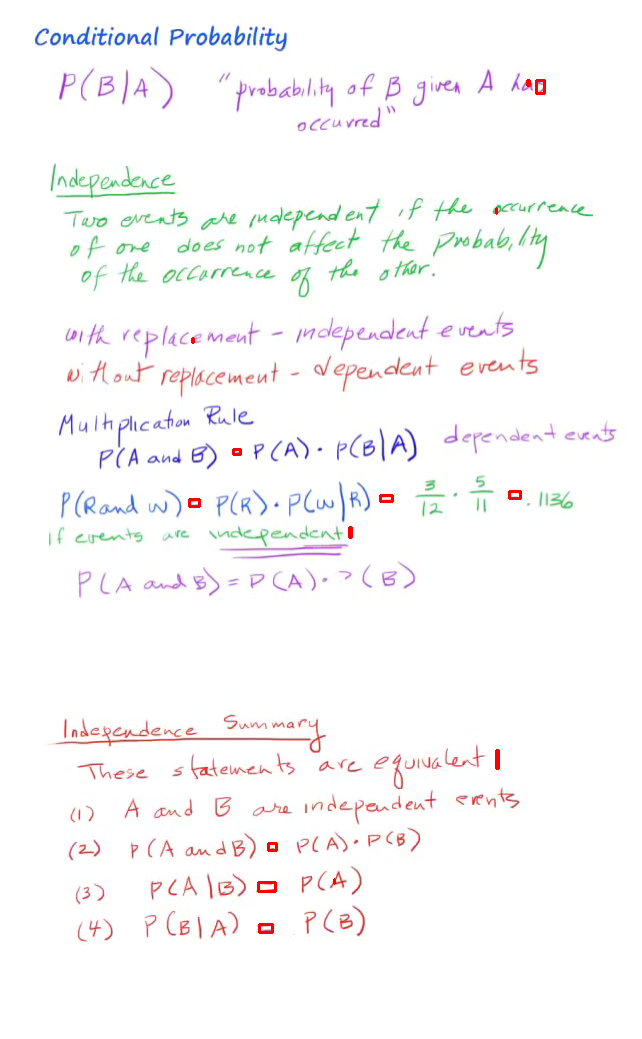 Conditional Probability
P(B|A) "probability of B given A has
occurred"
Independence
Two events are independent if the occurrence
of one does not affect the probability
of the occurrence of the other.
with replacement - independent events
without replacement - dependent events
Multiplication Rule
P(A and B) = P(A) · P(B|A) dependent events
P(R and W) = P(R) · P(W|R) = 3/12 · 5/11 = .1136
if events are independent
P(A and B) = P(A) · P(B)
Independence Summary
These statements are equivalent
(1) A and B are independent events
(2) P(A and B) = P(A) · P(B)
(3) P(A|B) = P(A)
(4) P(B|A) = P(B)